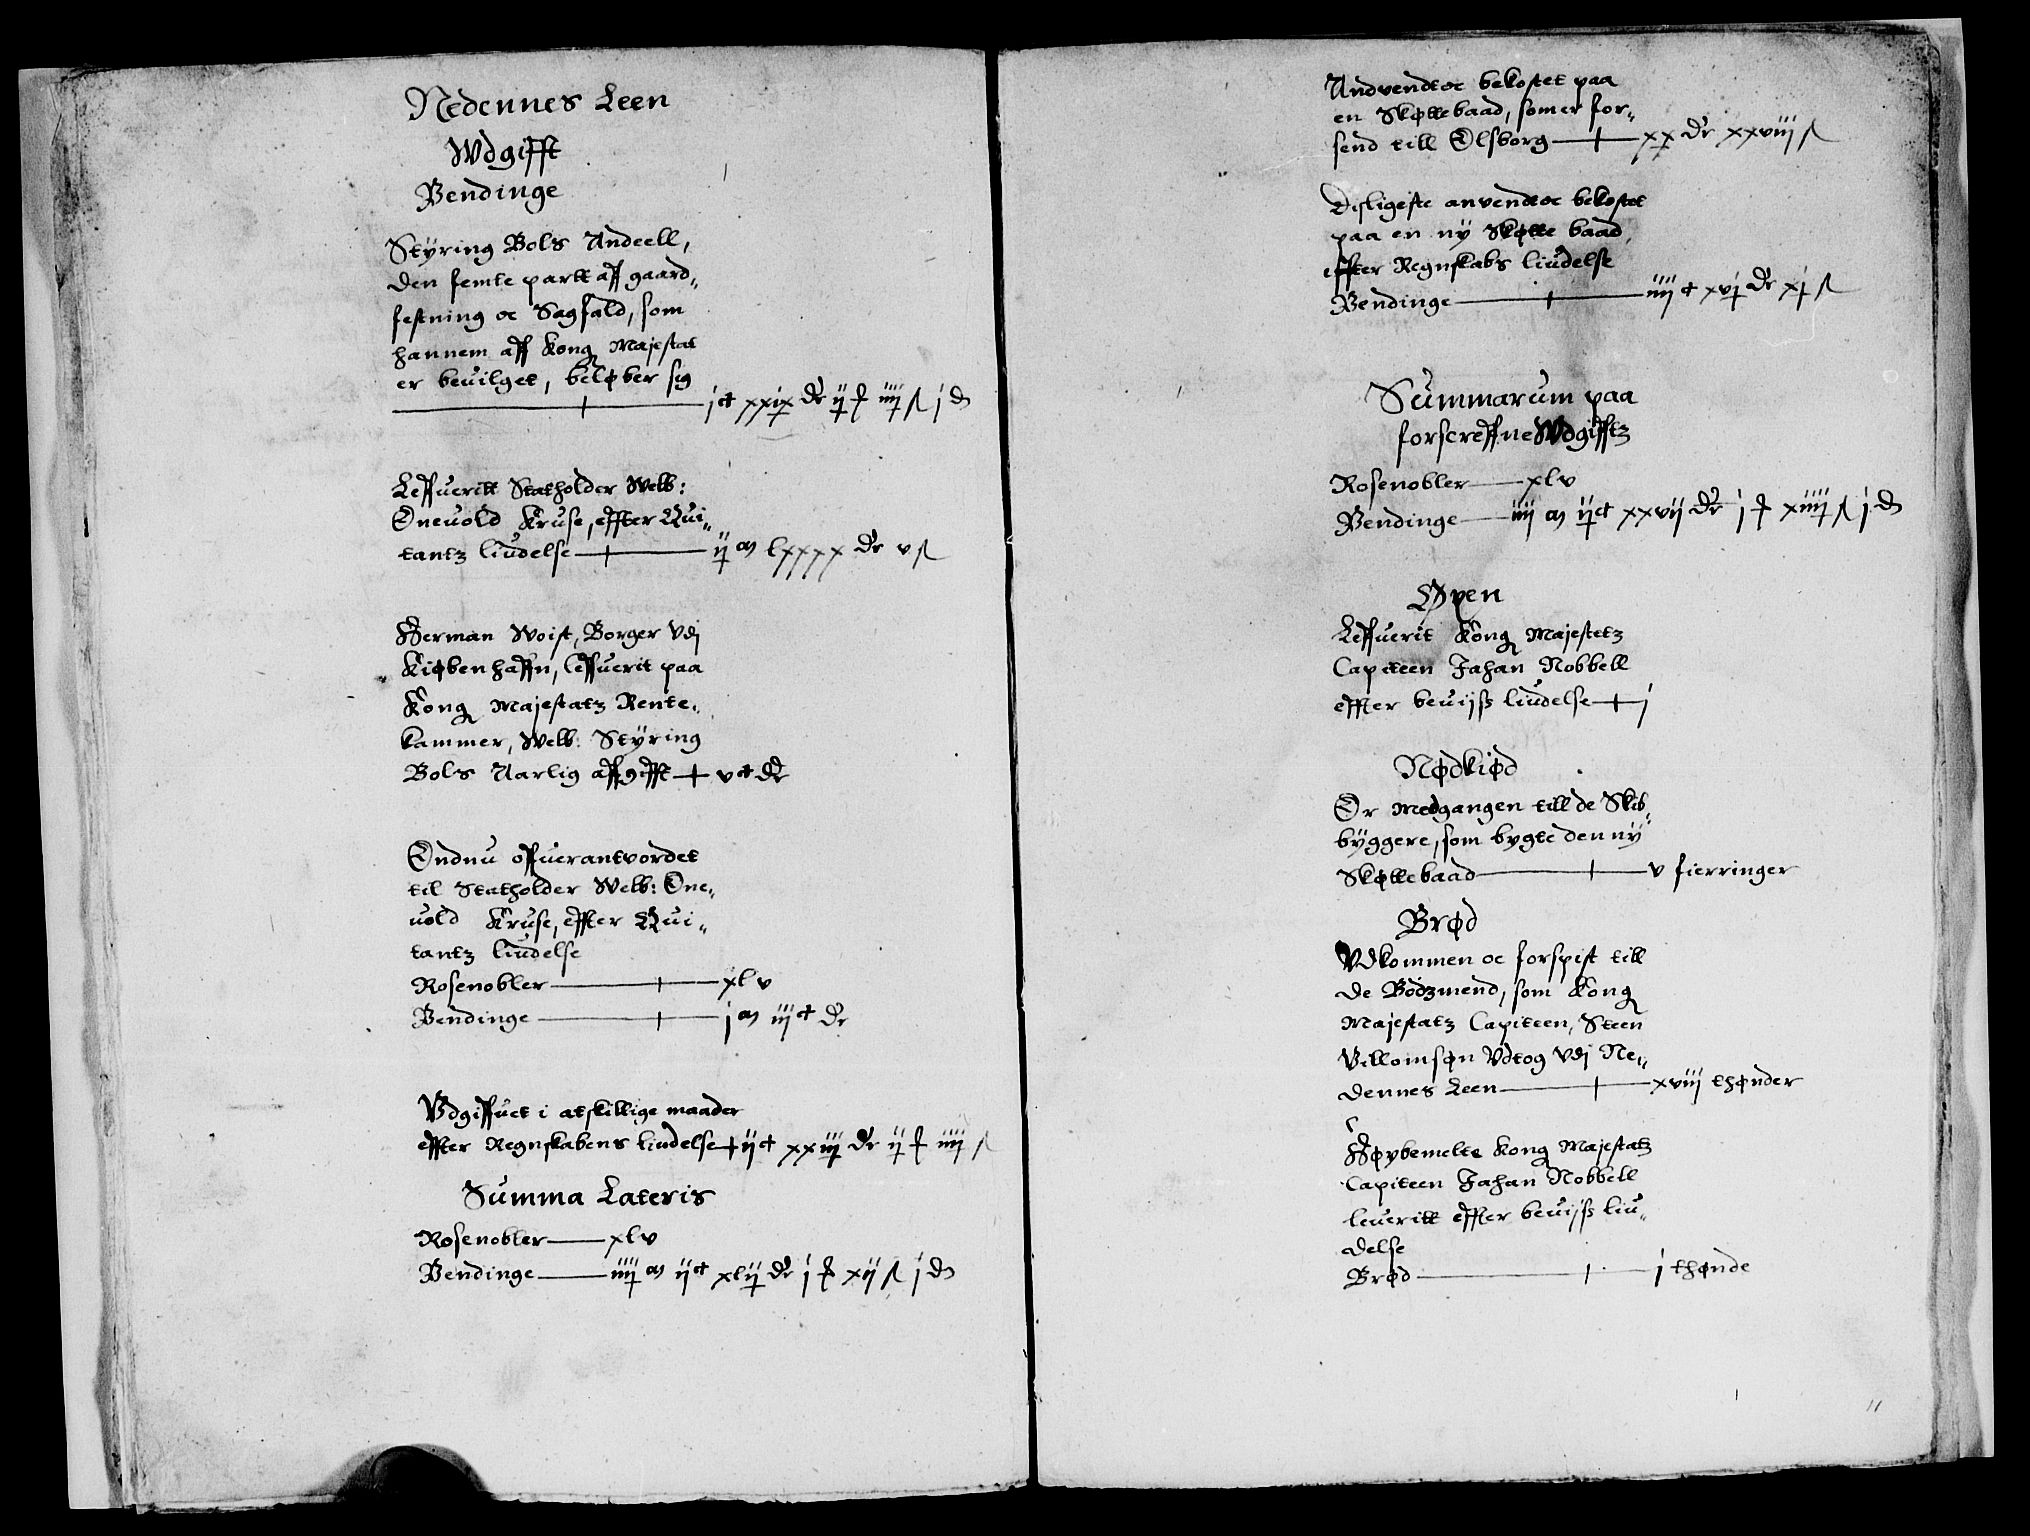 Nedennes Leen
Wdgifft
Pendinge
Styring Bols Andeell,
den femte partt aff gaard„
festning oc Sagfald, som
hannem aff Kong Majestat
er beuilget, beløber sig
j ct xxix dr ij ƒ iiij s j d
Leffueritt Statholder Welb:
Eneuold Kruse, effter Qui„
tantz liudelse ij m lxxxx dr v s
Herman Woist, Borger vdj
Kiøbenhaffn, leffuerit paa
Kong Majestatz Rente„
kammer, Welb: Styring
Bols Aarlig affgifft v ct dr
Endnu offuerantvordet
til Statholder Welb: Ene„
uold Kruse, effter Qui„
tantz liudelse
Rosenobler xlv
Pendinge j m iij ct dr
Vdgiffuet i atskillige maader
effter Regnskabens liudelse ij ct xxiij dr ij ƒ iiij s
Summa Lateris
Rosenobler xlv
Pendinge iiij m ij ct xlij dr j ƒ xij s j d
Andvendt oc bekostet paa
en Skøttebaad, som er for„
send till Elsborg xx dr xxviij s
Disligeste anvendt oc bekostet
paa en ny Skøtte baad,
effter Regnskabs liudelse
Pendinge iiij ct xvj dr xj s
Summarum paa
forscreffne Wdgifftz
Rosenobler xlv
Pendinge iiij m ij ct xxvij dr j ƒ xiiij s j d
Øxen
Leffuerit Kong Majestetz
Capiteen Jahan Nobbell
effter beuijß liudelse j
Nødkiød
Er Medgangen till de Skib„
byggere, som bygte den ny
Skøttebaad v fierringer
Brød
Vdkommen oc forspist till
de Bødzmend, som Kong
Majestatz Capiteen, Steen
Villomsøn Vdtog vdj Ne„
dennes Leen xviij thønder
Høybemelte Kong Majestatz
Capiteen Jahan Nobbell
leueritt effter beuijß liu„
delse
Brød j thønde
11